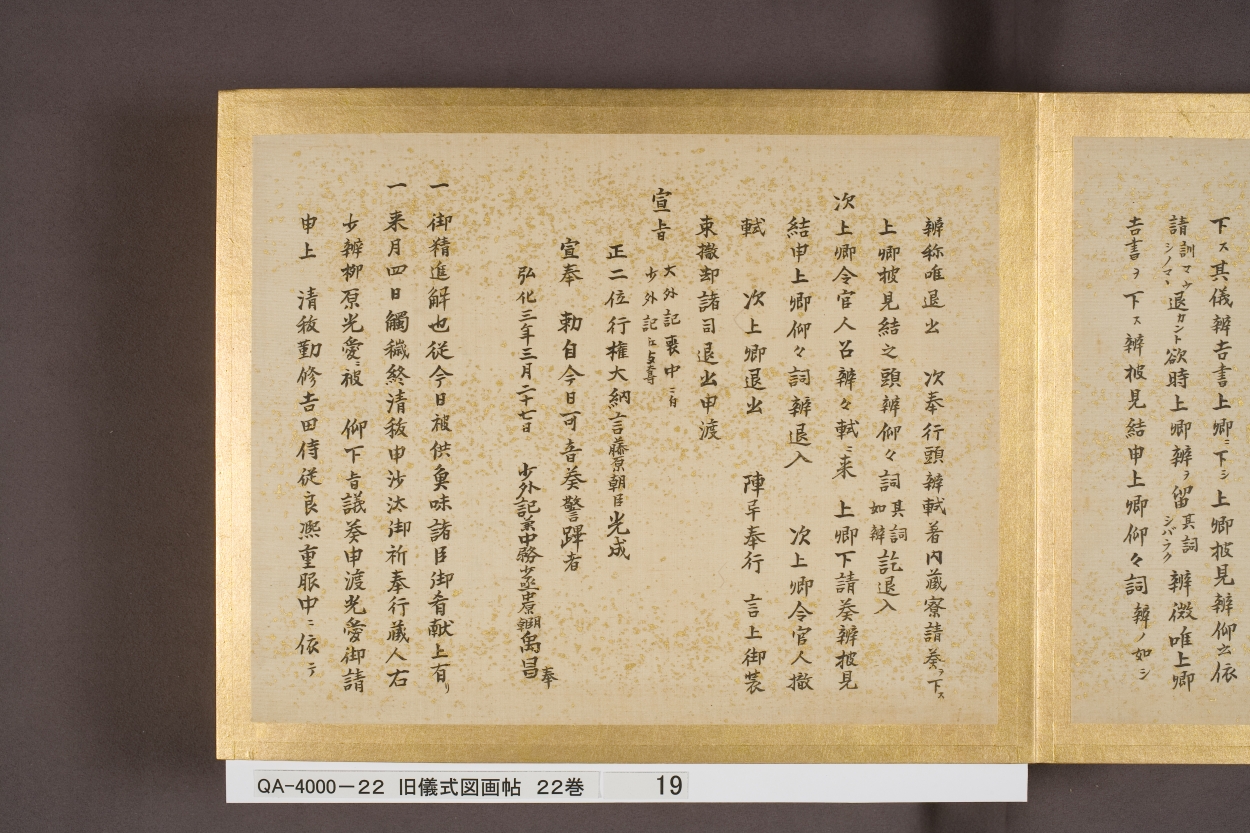 下ス其儀辨吉書上卿ニ下シ上卿披見辨仰出依
請訓マウシノマヽ退カント欲時上卿辨ヲ留其詞シバラク辨微唯上卿
吉書ヲ下ス辨披見結申上卿仰々詞辨ノ如シ
辨称唯退出 次奉行頭辨軾著内蔵寮請奏ヲ下ス
上卿披見結之頭辨仰々詞其詞如辨訖退入
次上卿令官人召辨々軾ニ来 上卿下請奏辨披見
結申上卿仰々詞辨退入 次上卿令官人撤
軾 次上卿退出 陣早奉行 言上御装
束撤却諸司退出申渡
宣旨 大外記喪中ニ有
少外記江与奪
正二位行権大納言藤原朝臣光成
宣奉 勅自今日可音奏警蹕者
弘化三年三月二十七日 少外記兼中務少丞中原朝臣禹昌奉
一 御精進解也従今日被供魚味諸臣御肴献上有り
一 来月四日觸穢終清祓申沙汰御祈奉行蔵人右
少辨柳原光愛ニ被 仰下旨議奏申渡光愛御請
申上 清祓勤修吉田侍従良熙重服中ニ依テ
QA-4000-22 旧儀式図画帖 22巻 19